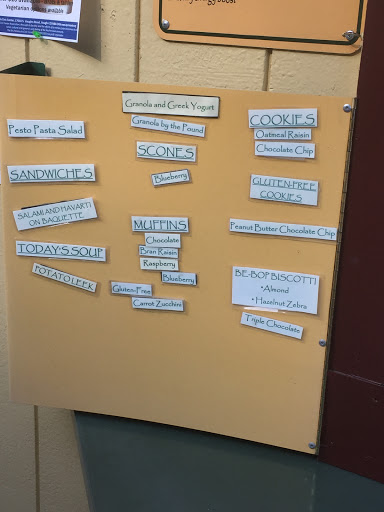 Vegetarian options available
Pesto Pasta Salad
SANDWICHES
SALAMI AND HAVARTI
ON BAGUETTE
TODAY'S SOUP
POTATO LEEK
Granola and Greek Yogurt
Granola by the Pound
SCONES
Blueberry
MUFFINS
Chocolate
Bran Raisin
Raspberry
Blueberry
Gluten-Free
Carrot Zucchini
COOKIES
Oatmeal Raisin
Chocolate Chip
GLUTEN-FREE
COOKIES
Peanut Butter Chocolate Chip
BE-BOP BISCOTTI
• Almond
• Hazelnut Zebra
Triple Chocolate